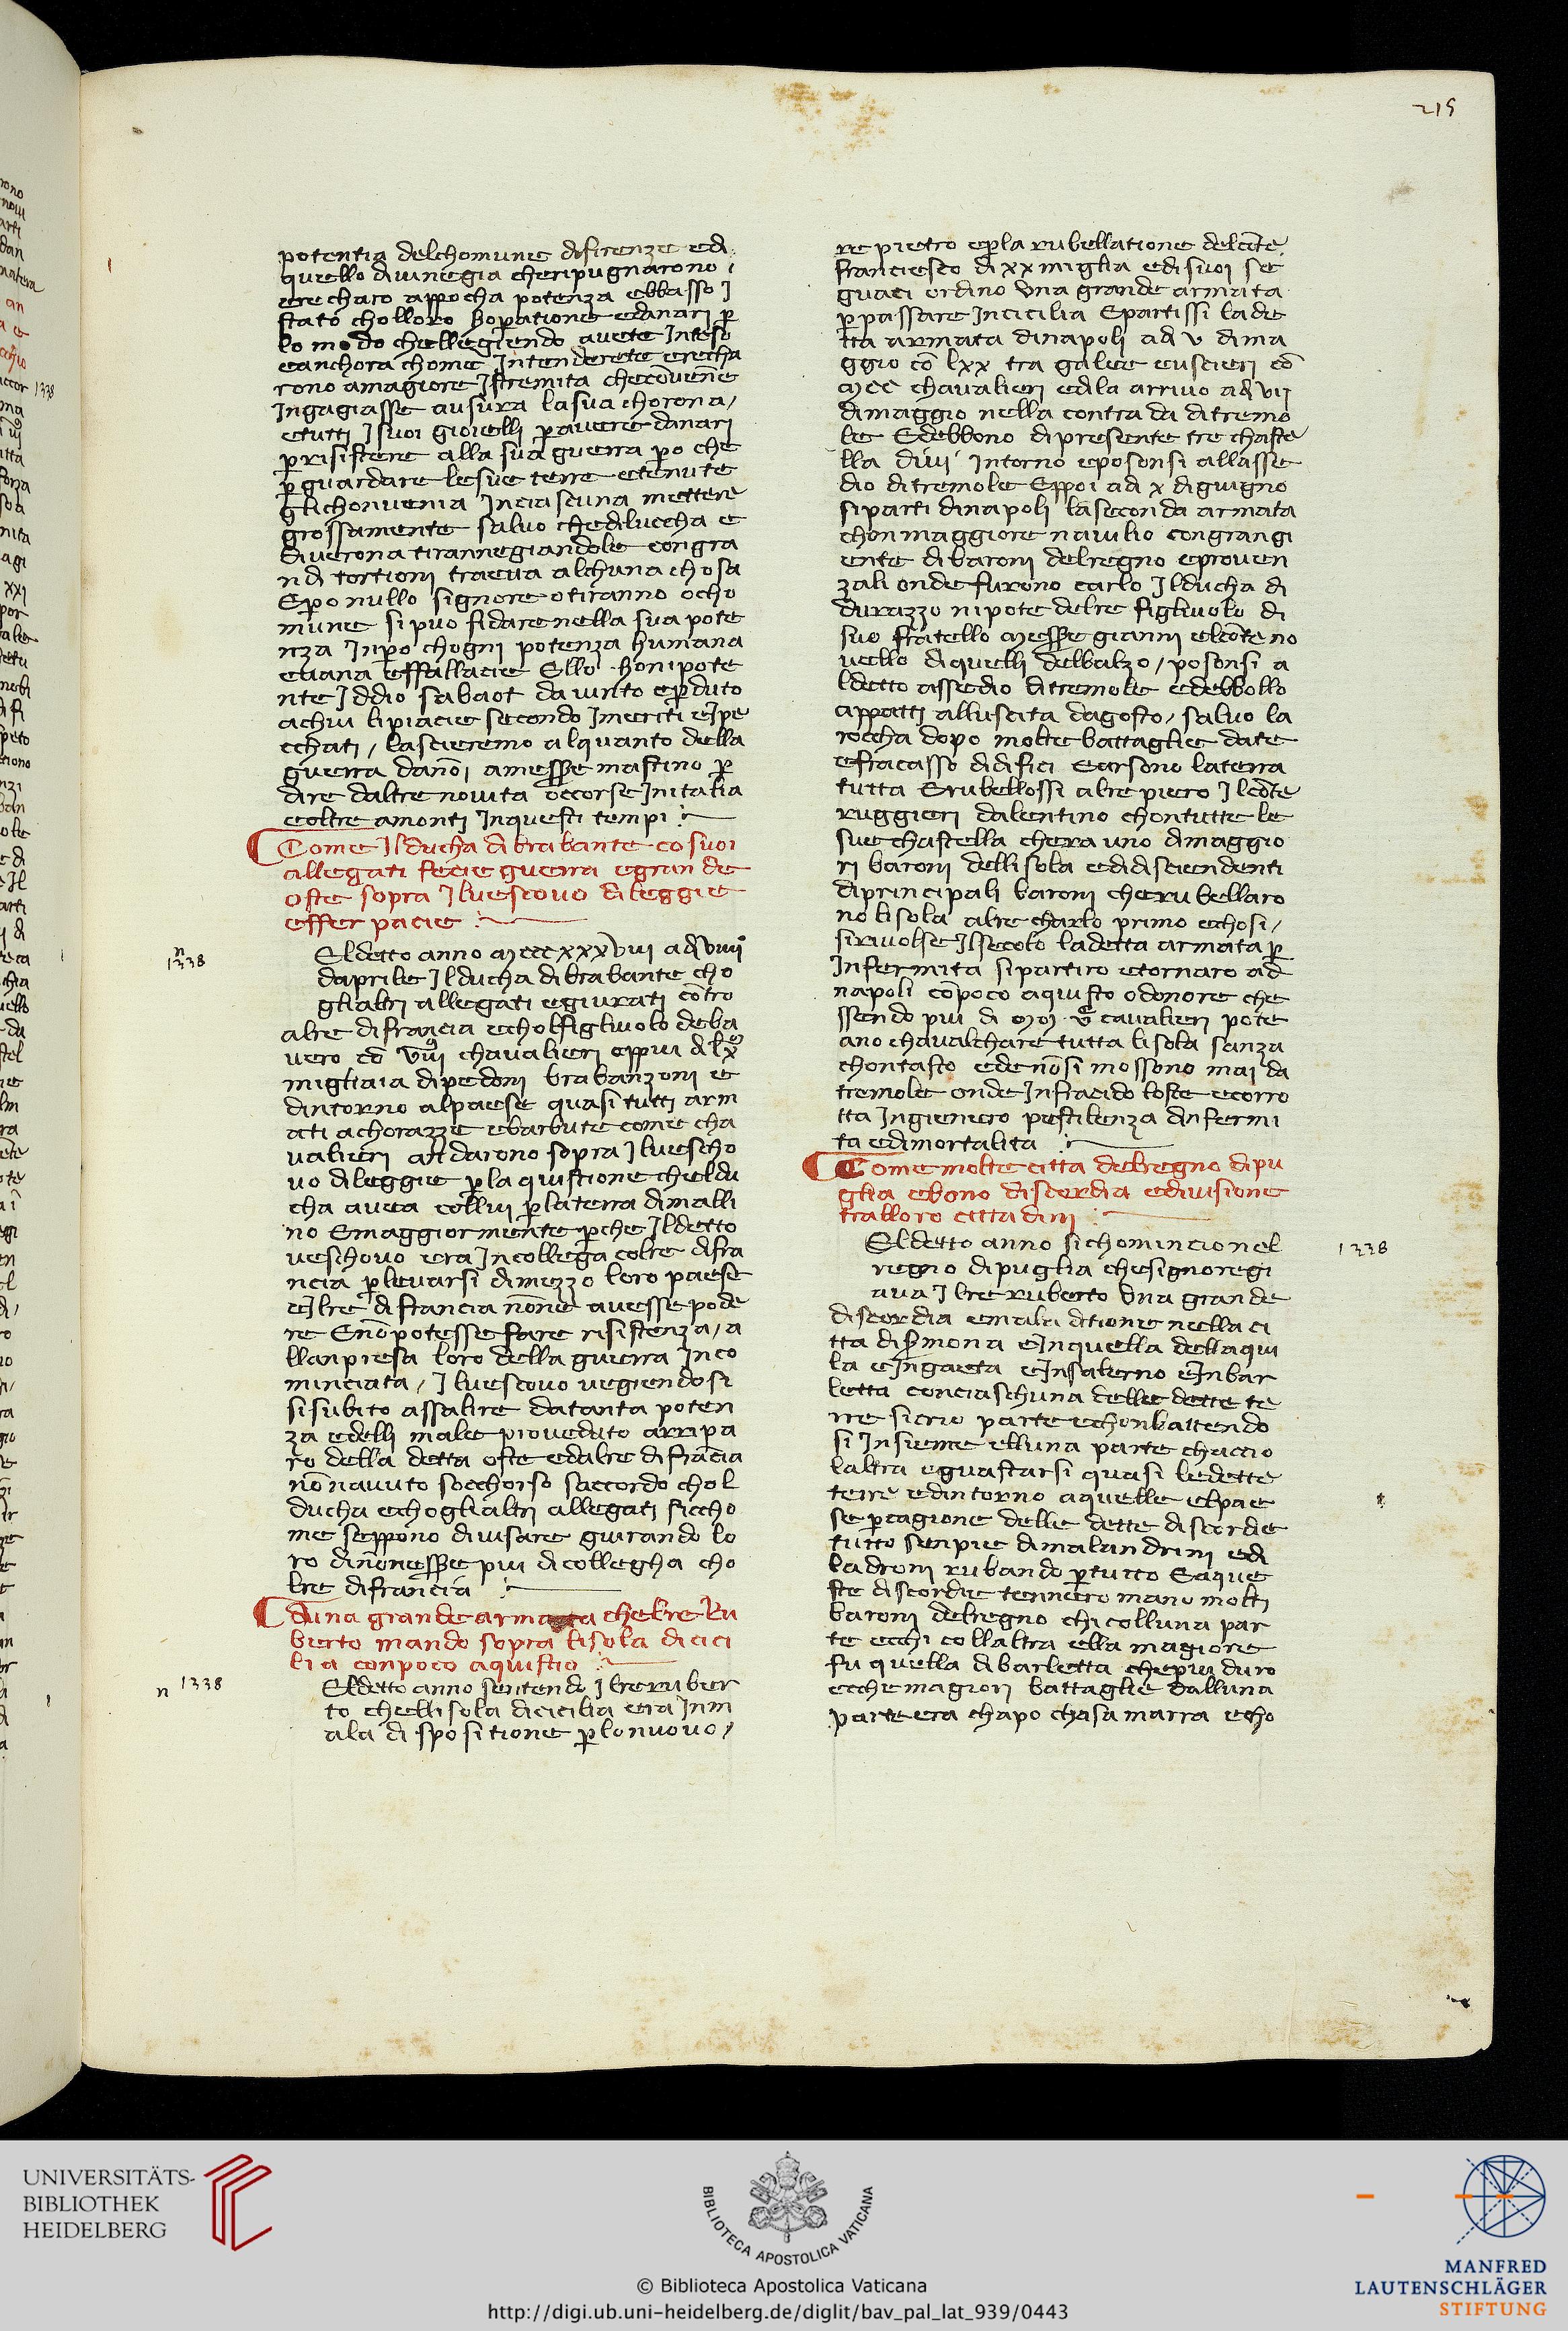 215
potentia delchomune difirenze edi
quello diuinegia cheripugnarono i
erechato appocha potenza ebbasso j
stato cholloro hoꝑatione edanari ꝑ
lo modo chelleggiendo auete Inteso
eanchora chome Intenderete erecha
rono amagiore Jstremita checōuenne
Ingagiasse ausura lasua chorona/
etutti J suoi gioielli ꝑauere danari
ꝑrisistere alla sua guerra ꝑo che
ꝑguardare lesue terre etenute
glichonuenia Inciascuna mettere
grossamente saluo chediluccha e
diuerona tirannegiandole congra
ndi tortioni traeua alchuna chosa
Eꝑo nullo signore otiranno ocho
mune si puo fidare nella sua pote
nza Inꝑo chogni potenza humana
euana effallacie Ello honipote
nte Jddio sabaot da uinto eꝑduto
achui lipiacie secondo Jmeriti eJpe
cchati/ lascieremo alquanto della
guerra danō amess̄e mastino ꝑ
dire daltre nouita occorse Initalia
eoltre amonti Inquesti tempi
Come Jlducha di brabante co suoi
allegati fecie guerra egrande
oste sopra Jluescouo dileggie
effer pacie
1338
n
Eldetto anno mcccxxxviii adi viiii
daprile Jlducha di brabante cho
glialtri allegati egiurati cōtro
alre difrancia eccholfigliuolo deba
uero cō viiiͦ chavalieri eppiu di lxͦ
migliaia dipedoni brabanzoni e
dintorno alpaese quasi tutti arm
ati achorazze ebarbute come cha
ualieri andarono sopra Jluescho
uo dileggie ꝑla quistione cheldu
cha auea collui ꝑlaterra dimalli
no Emaggiormente ꝑche Jldetto
ueschouo era Incollega colre difra
ncia ꝑleuarsi dimezzo loro paese
eJlre difrancia nōne auesse pode
re Enōpotesse fare risistenza/ a
llanpresa loro della guerra Inco
minciata/ Jluescouo uegiendosi
sisubito assalire datanta poten
za edelli male proueduto arripa
ro della detta oste edalre difrācia
nōnauuto socchorso saccordo chol
ducha echoglialtri allegati siccho
me seppono diuisare giurando lo
ro dinōness̄e piu dicollegha cho
lre difrancia
duna grande armata chelre Ru
berto mando sopra lisola dicici
lia conpoco aquisto
n 1338
Eldetto anno sentendo Jlreruber
to chellisola dicicilia era Inm
ala dispositione ꝑlonuouo/
re pietro eꝑla rubellatione delcōte
franciesco di xx miglia edi suoi se
guaci ordino Una grande armata
ꝑpassare Incicilia Epartissi lade
tta armata dinapoli adi v dima
ggio cō lxx tra galee euscieri cō
mcc chavalieri edila arriuo adi vij
dimaggio nella contrada ditremo
le Edebbono dipresente tre chaste
lla diui Intorno eposonsi allasse
dio ditremole Eppoi adi x digiugno
siparti dinapoli laseconda armata
chon maggiore nauilio congrangi
ente dibaroni delregno eprouen
zali onde furono carlo Jlducha di
durazzo nipote delre figliuolo di
suo fratello mess̄e gianni elcōte no
uello diquelli delbalzo/ posonsi a
ldetto assedio ditremole edebbollo
appatti alluscita dagosto/ saluo la
roccha dopo molte battaglie date
efracasso didifici Earsono laterra
tutta Erubellossi alre piero Jlcōte
ruggieri dalentino chontutte le
sue chastella chera uno dimaggio
ri baroni dellisola edidisciendenti
diprincipali baroni cherubellaro
no lisola alre charlo primo ecchosi/
siriuolse Jlsecolo ladetta armata ꝑ
Infermita sipartiro etornaro ad
napoli cōpoco aquisto odonore che
ssendo piu di mm vͨ cavalieri pote
ano chavalchare tutta lisola sanza
chontasto edenōsi mossono mai da
tremole onde Infracido loste ecorro
tta Ingienero pestilenza dinfermi
ta edimortalita
Come molte citta delregno dipu
glia ebono discordia ediuisione
tralloro cittadini
1338
Eldetto anno sichominciò nel
regno dipuglia chesignoregi
aua Jlre ruberto Una grande
discordia emaladitione nella ci
tta disermona eInquella dellaqui
la eIngaeta eInsalerno eInbar
letta conciaschuna delle dette te
rre sicrio parte echonbattendo
si Insieme elluna parte chaccio
laltra eguastarsi quasi ledette
terre edintorno aquelle elpae
se ꝑcagione delle dette discordie
tutto senpie dimalandrini edi
ladroni rubando ꝑtutto Eaque
ste discordie tennero mano molti
baroni delregno chi colluna par
te ecchi collaltra ella magiore
fu quella dibarletta chepiu duro
ecche magiori battaglie dalluna
parte era chapo chasa marra echo
UNIVERSITÄTS-
BIBLIOTHEK
HEIDELBERG
BIBLIOTECA APOSTOLICA VATICANA
© Biblioteca Apostolica Vaticana
http://digi.ub.uni-heidelberg.de/diglit/bav_pal_lat_939/0443
MANFRED
LAUTENSCHLÄGER
STIFTUNG